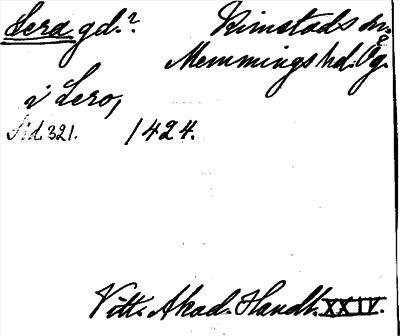 Lera gd.? Kimstads sn.
Memmings hd. Ög.
i Lero,
Sid. 321. 1424.
Vitt. Akad. Handl. XXIV.